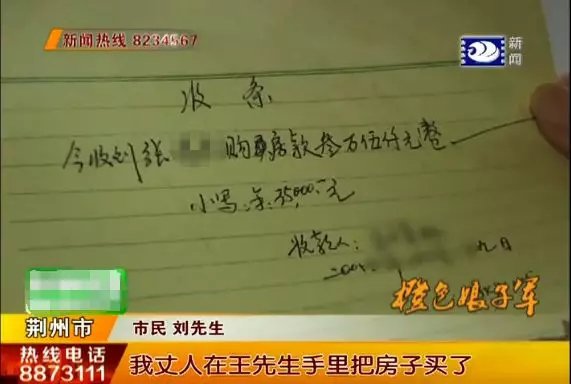 新闻热线 8234567
新闻
收条
今收到张 购买房款叁万伍仟元整
小写：￥35000.元
收款人：
九日
橙色娘子军
荆州市
市民 刘先生
热线电话
8873111
我丈人在王先生手里把房子买了